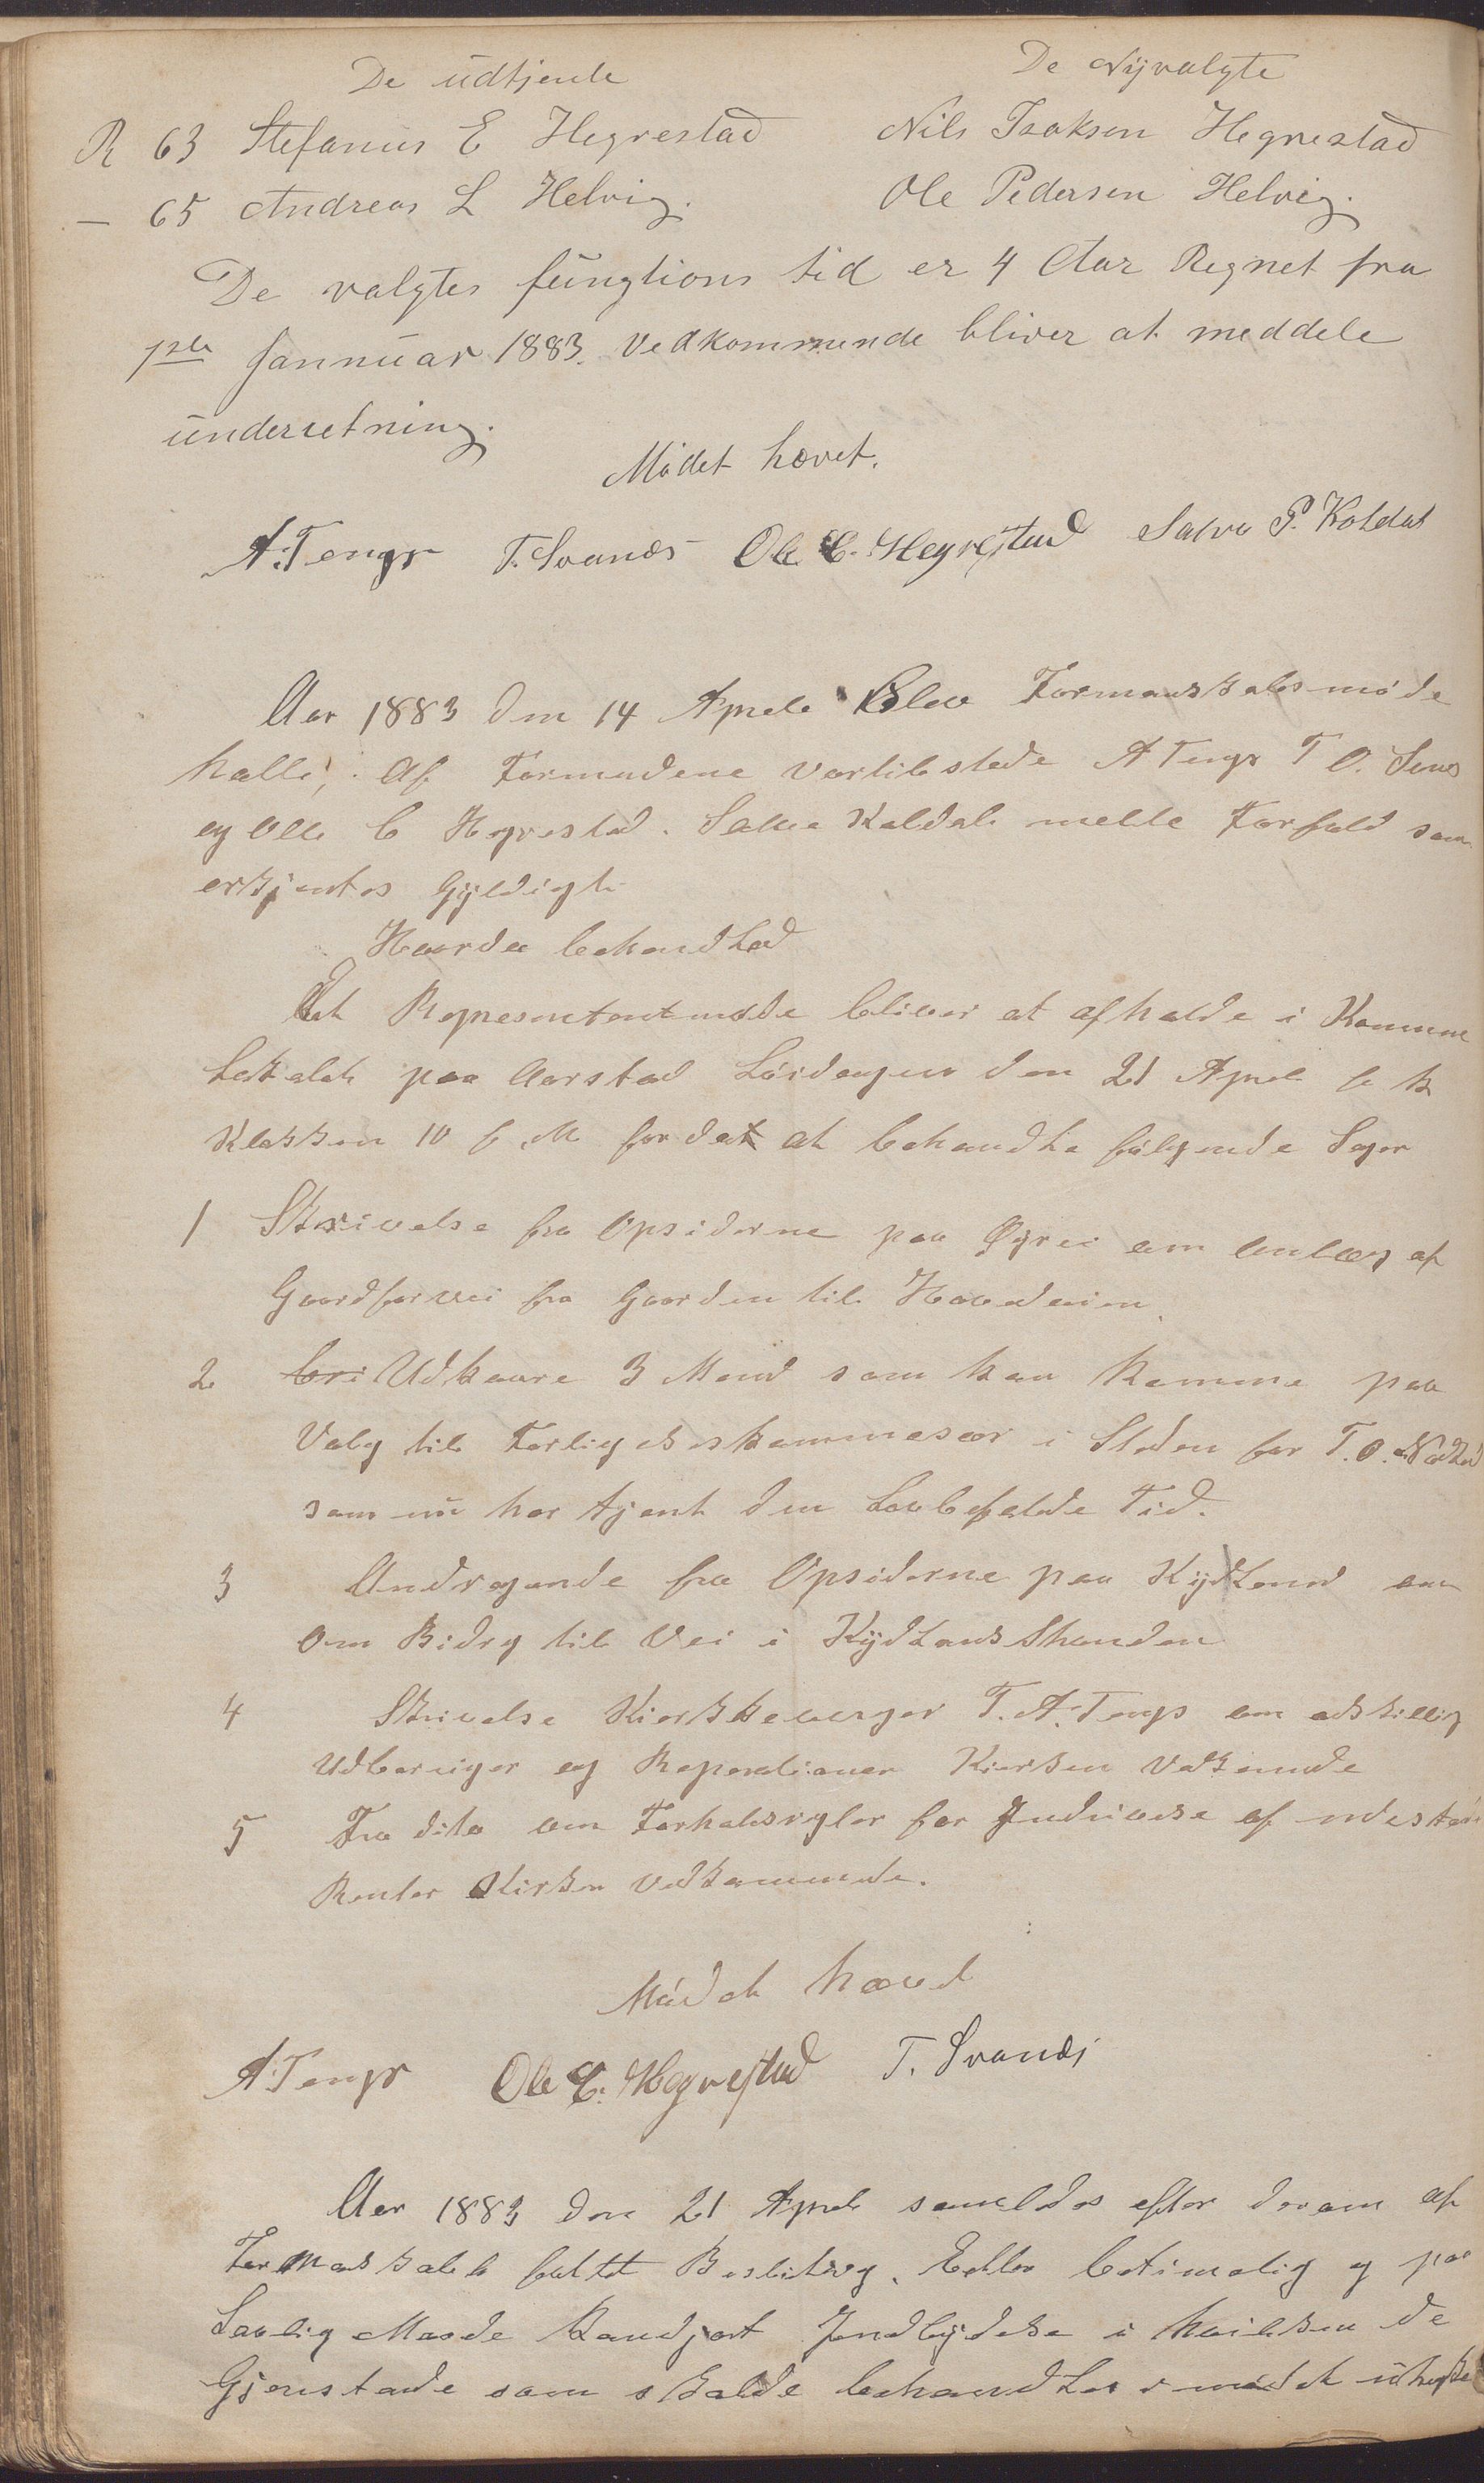 De udtjente
De Nyvalgte
R 63 Stefanus E Hegrestad Nils Isaksen Hegrestad
— 65 Andreas L Helvig. Ole Pedersen Helvig.
De valgtes fungtions tid er 4 Aar Regnet fra
1ste Jannuar 1883. Vedkommende bliver at meddele
underretning.
Mödet hævet.
A. Tengs T. Svanes Ole C. Hegrestad Salve P. Koldal
Aar 1883 den 14 Aprel Blev Formanskabsmöde
holdt, Af Formendene vartilstede A Tengs T O. Svanes
og Olle C Hegrestad. Salve Koldal melte Forfald som
erkjentes Gyldigt
Hvorda behandlad
Et Representantmöde bliver at afholde i Kommune
Lokalet paa Aarstad Lördagen den 21 Aprel k
Klokken 10 f. M for det at behandle fölgende Sager
1 Skrivelse fra Opsiderne paa Øgrei om Anlæg af
Gaardfarvei fra Gaarden til Hovedveien
2 Udkaare 3 Mend som kan komme paa
Valg til Forligeseskommesær i Steden for T. O.
som nu har tjent den Lovbefalede Tid.
3 Andragende fra Opsiderne paa Kydland om
Om Bidrag til Vei i Kydlands
4 Skrivelse Kirkkeverger T. A. Tengs om adskillig
Udberinger og Reperationer Kirken Vedkomende
5 Fra dito om Forholdsregler for Inddrivelse af udestaa
Renter Kirken Vedkommende.
Mödet hævet
A. Tengs Ole C. Hegrestad T. Svanes
Aar 1883 den 21 Aprel samledes efter derom af
Formanskabet fattet Beslutning. Efter betimelig og paa
Lovlig Maade Kundjort Indbydelse i hvilken de
Gjenstande som skulde behandles i mödet